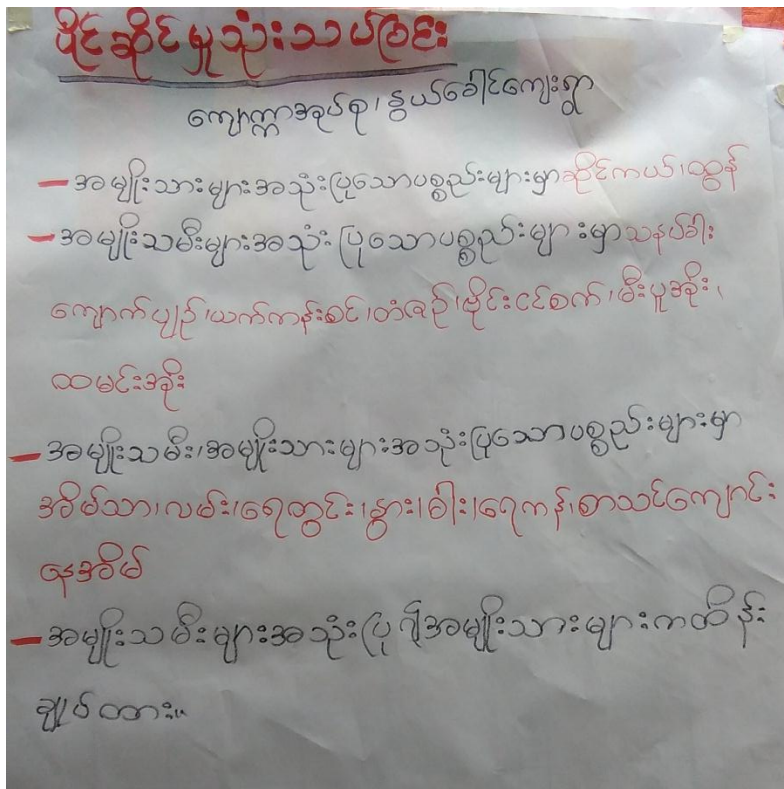 ပိုင်ဆိုင်မှုသုံးသပ်ခြင်း
ကျောက္ကာအုပ်စု၊ နွယ်ခေါင်ကျေးရွာ
- အမျိုးသားများအသုံးပြုသောပစ္စည်းများမှာ ဆိုင်ကယ်၊ ထွန်
- အမျိုးသမီးများအသုံးပြုသောပစ္စည်းများမှာ သနပ်ခါး
ကျောက်ပျဉ်၊ ယက်ကန်းစင်၊ တံဇဉ်၊ ဗိုင်းငင်စက်၊ မီးပူအိုး၊
ထမင်းအိုး
- အမျိုးသမီး၊ အမျိုးသားများအသုံးပြုသောပစ္စည်းများမှာ
အိမ်သာ၊ လမ်း၊ ရေတွင်း၊ နွား၊ ဓါး၊ ရေကန်၊ စာသင်ကျောင်း
နေအိမ်
- အမျိုးသမီးများအသုံးပြု၍ အမျိုးသားများကထိန်း
ချုပ်ထား။